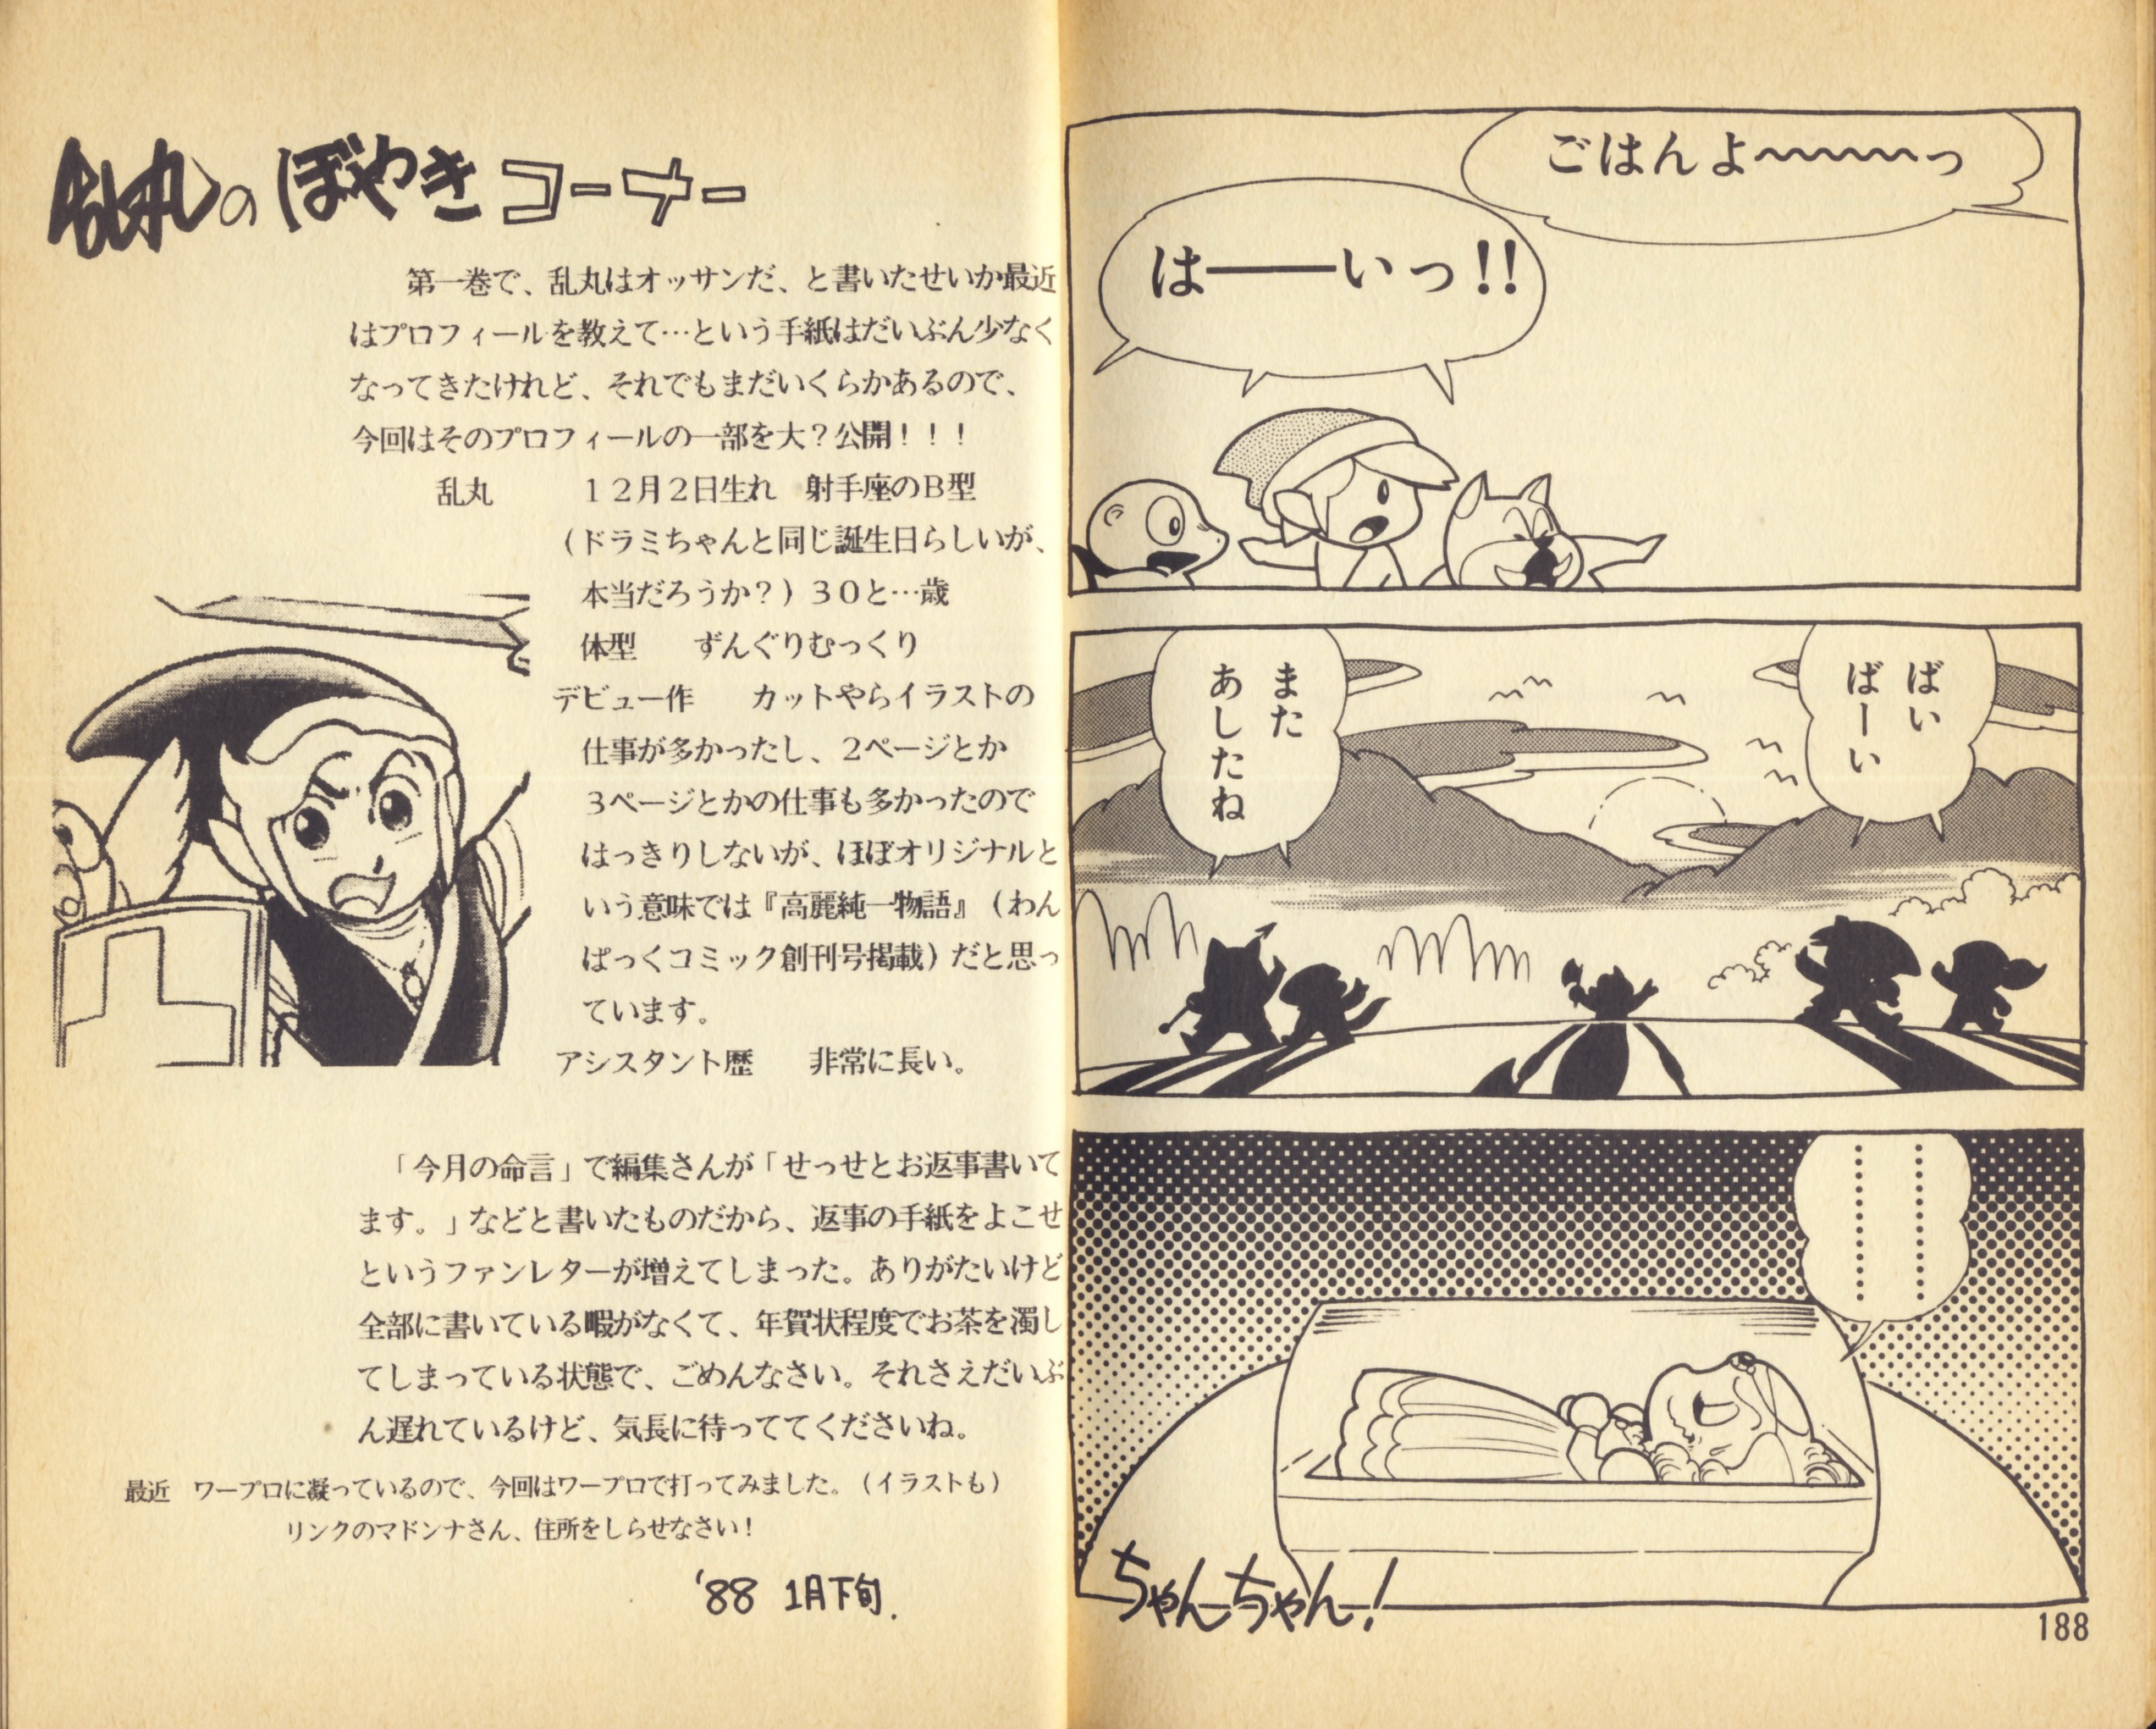 ごはんよ〜〜〜〜っ
は───いっ!!
ばい
ばーい
また
あしたね
…………
…………
ちゃんちゃん!
188
乱丸のぼやきコーナー
第一巻で、乱丸はオッサンだ、と書いたせいか最近
はプロフィールを教えて…という手紙はだいぶん少なく
なってきたけれど、それでもまだいくらかあるので、
今回はそのプロフィールの一部を大?公開!!!
乱丸　　　12月2日生れ　射手座のB型
(ドラミちゃんと同じ誕生日らしいが、
本当だろうか?)30と…歳
体型　　ずんぐりむっくり
デビュー作　　カットやらイラストの
仕事が多かったし、2ページとか
3ページとかの仕事も多かったので
はっきりしないが、ほぼオリジナルと
いう意味では『高麗純一物語』(わん
ぱっくコミック創刊号掲載)だと思っ
ています。
アシスタント歴　　非常に長い。
「今月の命言」で編集さんが「せっせとお返事書いて
ます。」などと書いたものだから、返事の手紙をよこせ
というファンレターが増えてしまった。ありがたいけど
全部に書いている暇がなくて、年賀状程度でお茶を濁し
てしまっている状態で、ごめんなさい。それさえだいぶ
ん遅れているけど、気長に待っててくださいね。
最近　ワープロに凝っているので、今回はワープロで打ってみました。(イラストも)
リンクのマドンナさん、住所をしらせなさい!
'88 1月下旬.